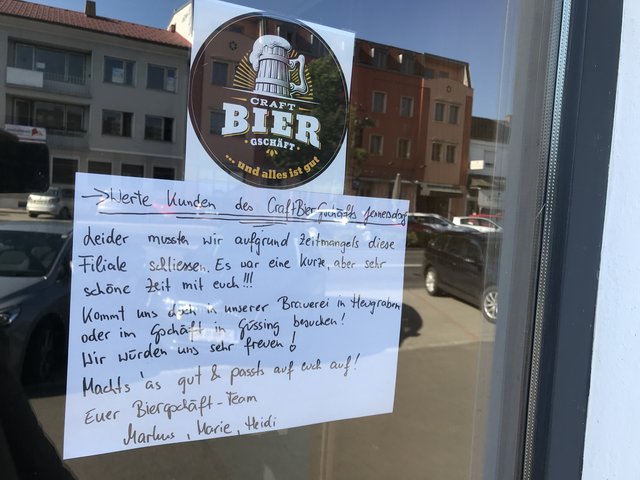 CRAFT
BIER
GSCHÄFT
... und alles ist gut
→ Werte Kunden des CraftBierGschäfts Jennersdorf
Leider mussten wir aufgrund Zeitmangels diese
Filiale schliessen. Es war eine kurze, aber sehr
schöne Zeit mit euch!!!
Kommt uns doch in unserer Brauerei in Heugraben
oder im Gschäft in Güssing besuchen!
Wir würden uns sehr freuen!
Machts 'as gut & passts auf euch auf!
Euer Biergschäft-Team
Markus, Marie, Heidi